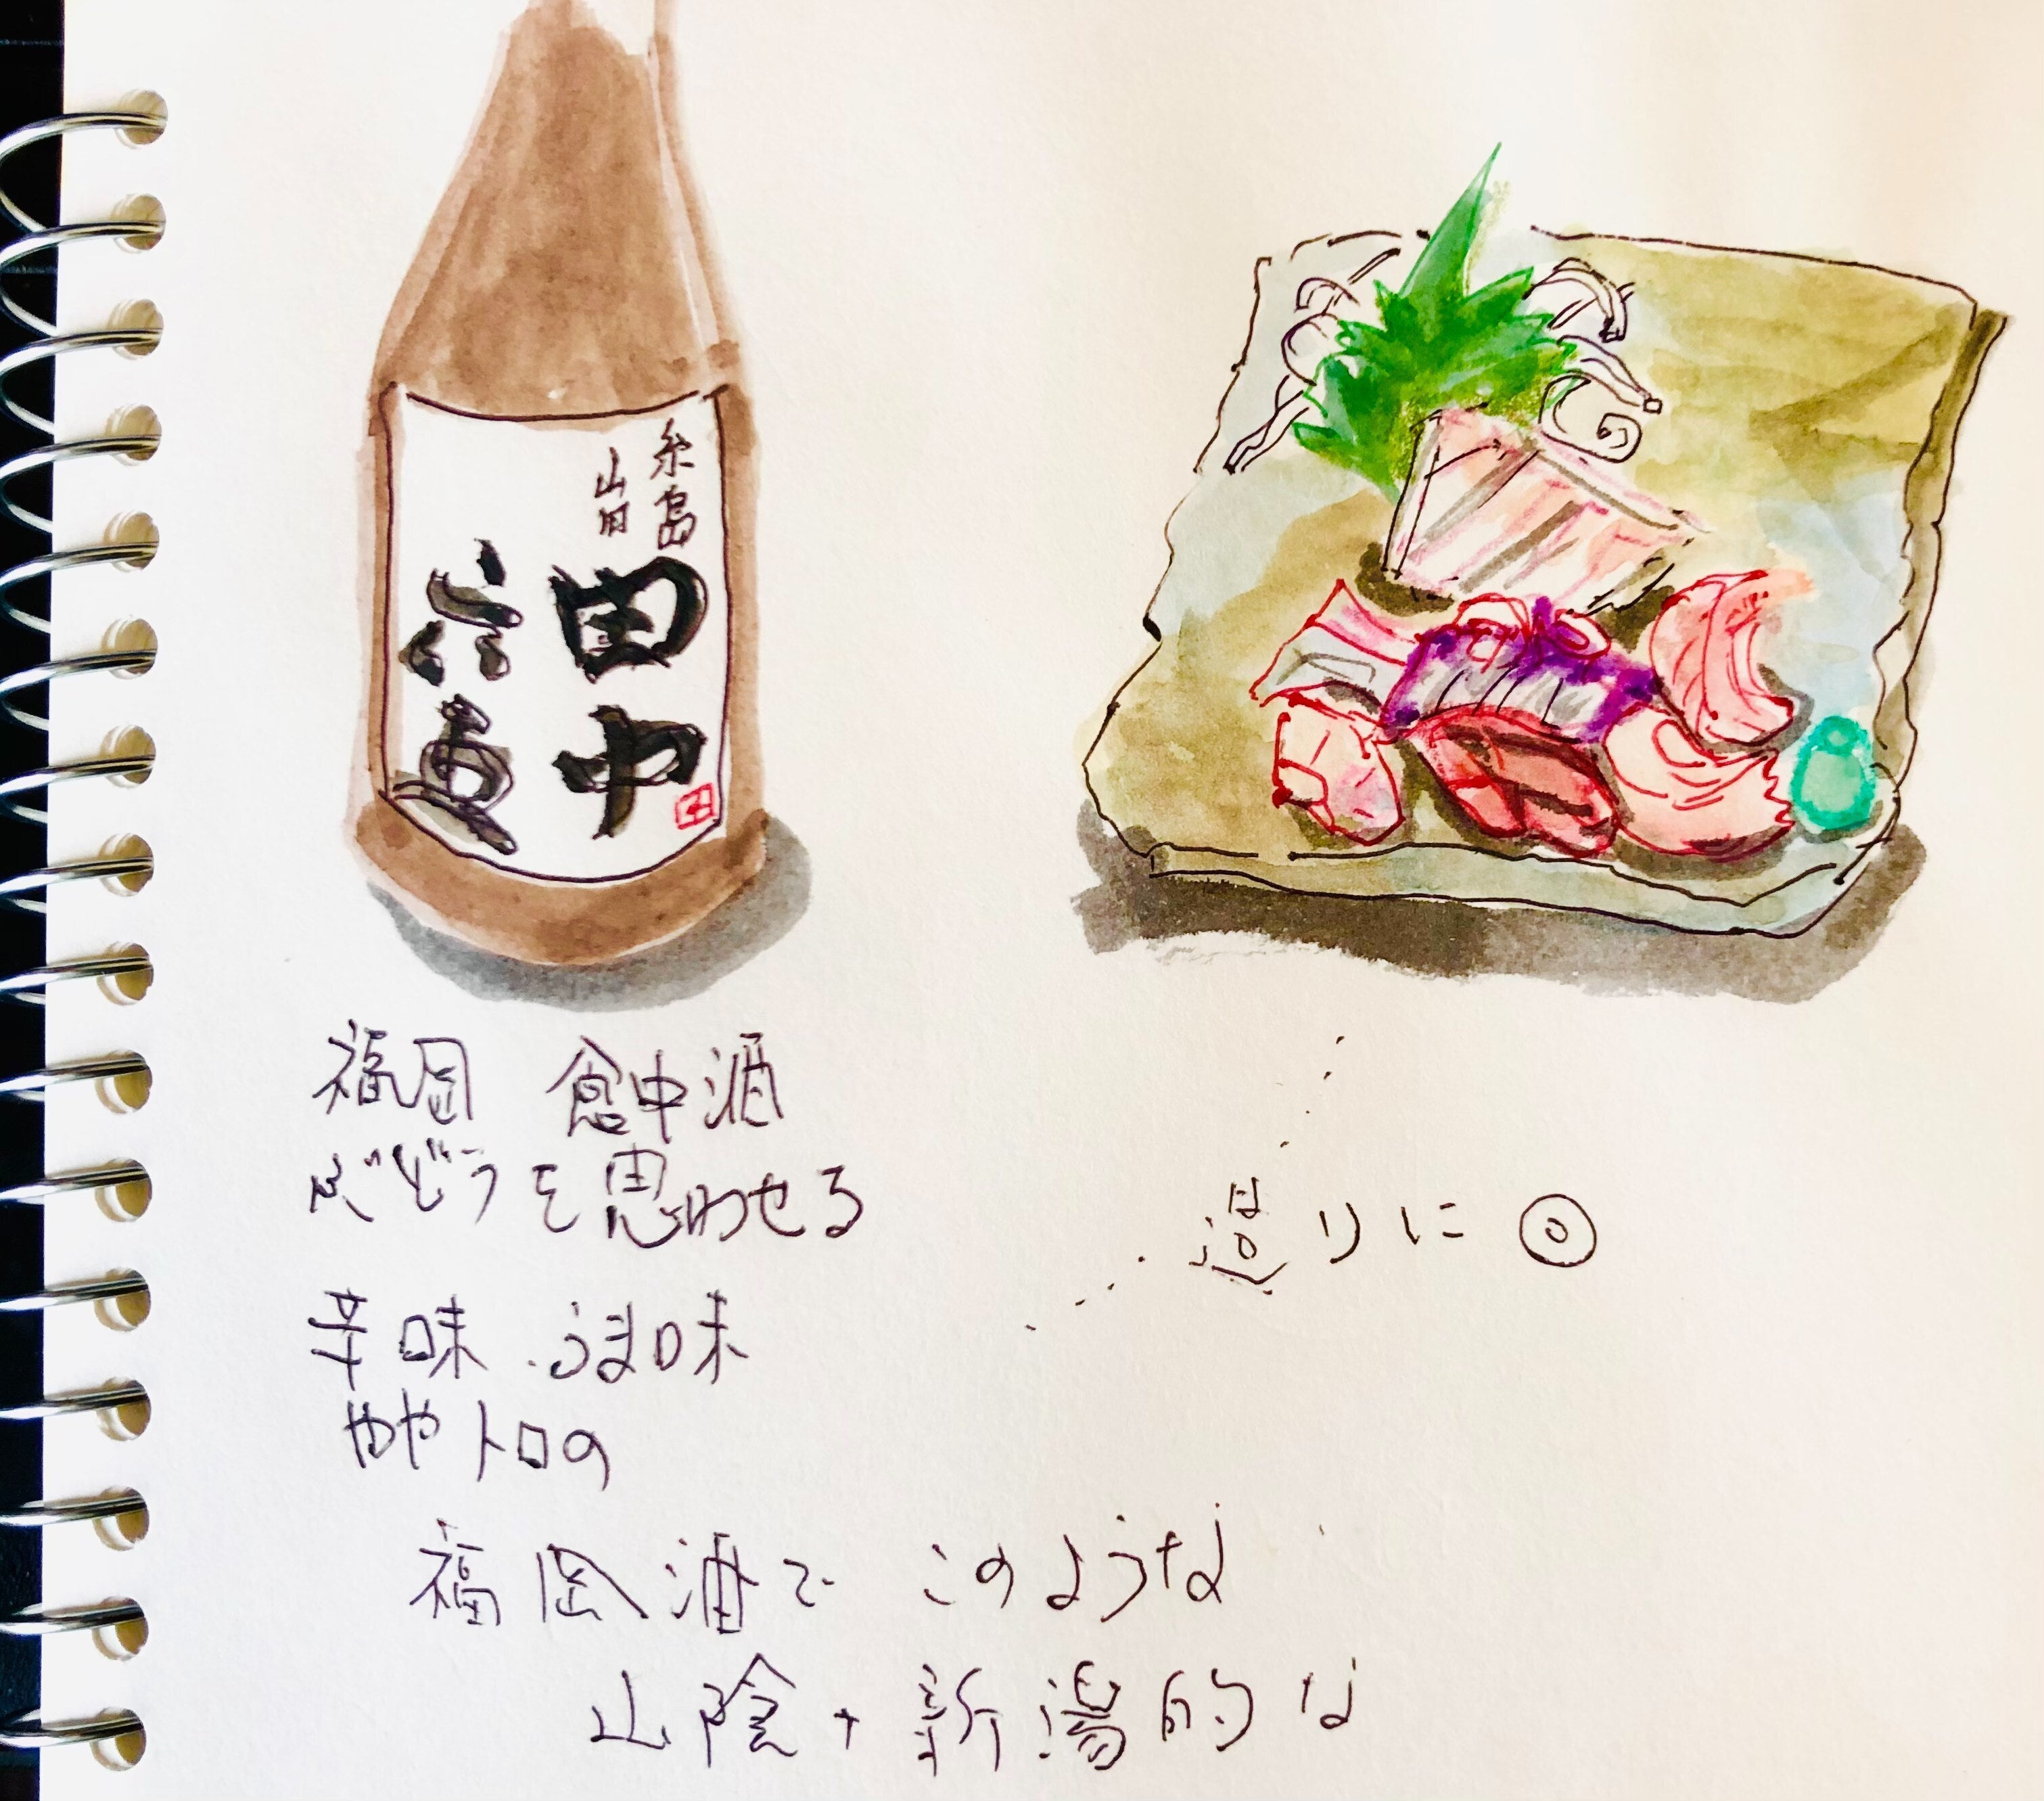 糸島
田中
福岡 食中酒
ぶどうを思わせる
辛味.うま味
ややトロの
造りに◎
福岡酒で このような
山陰+新潟的な